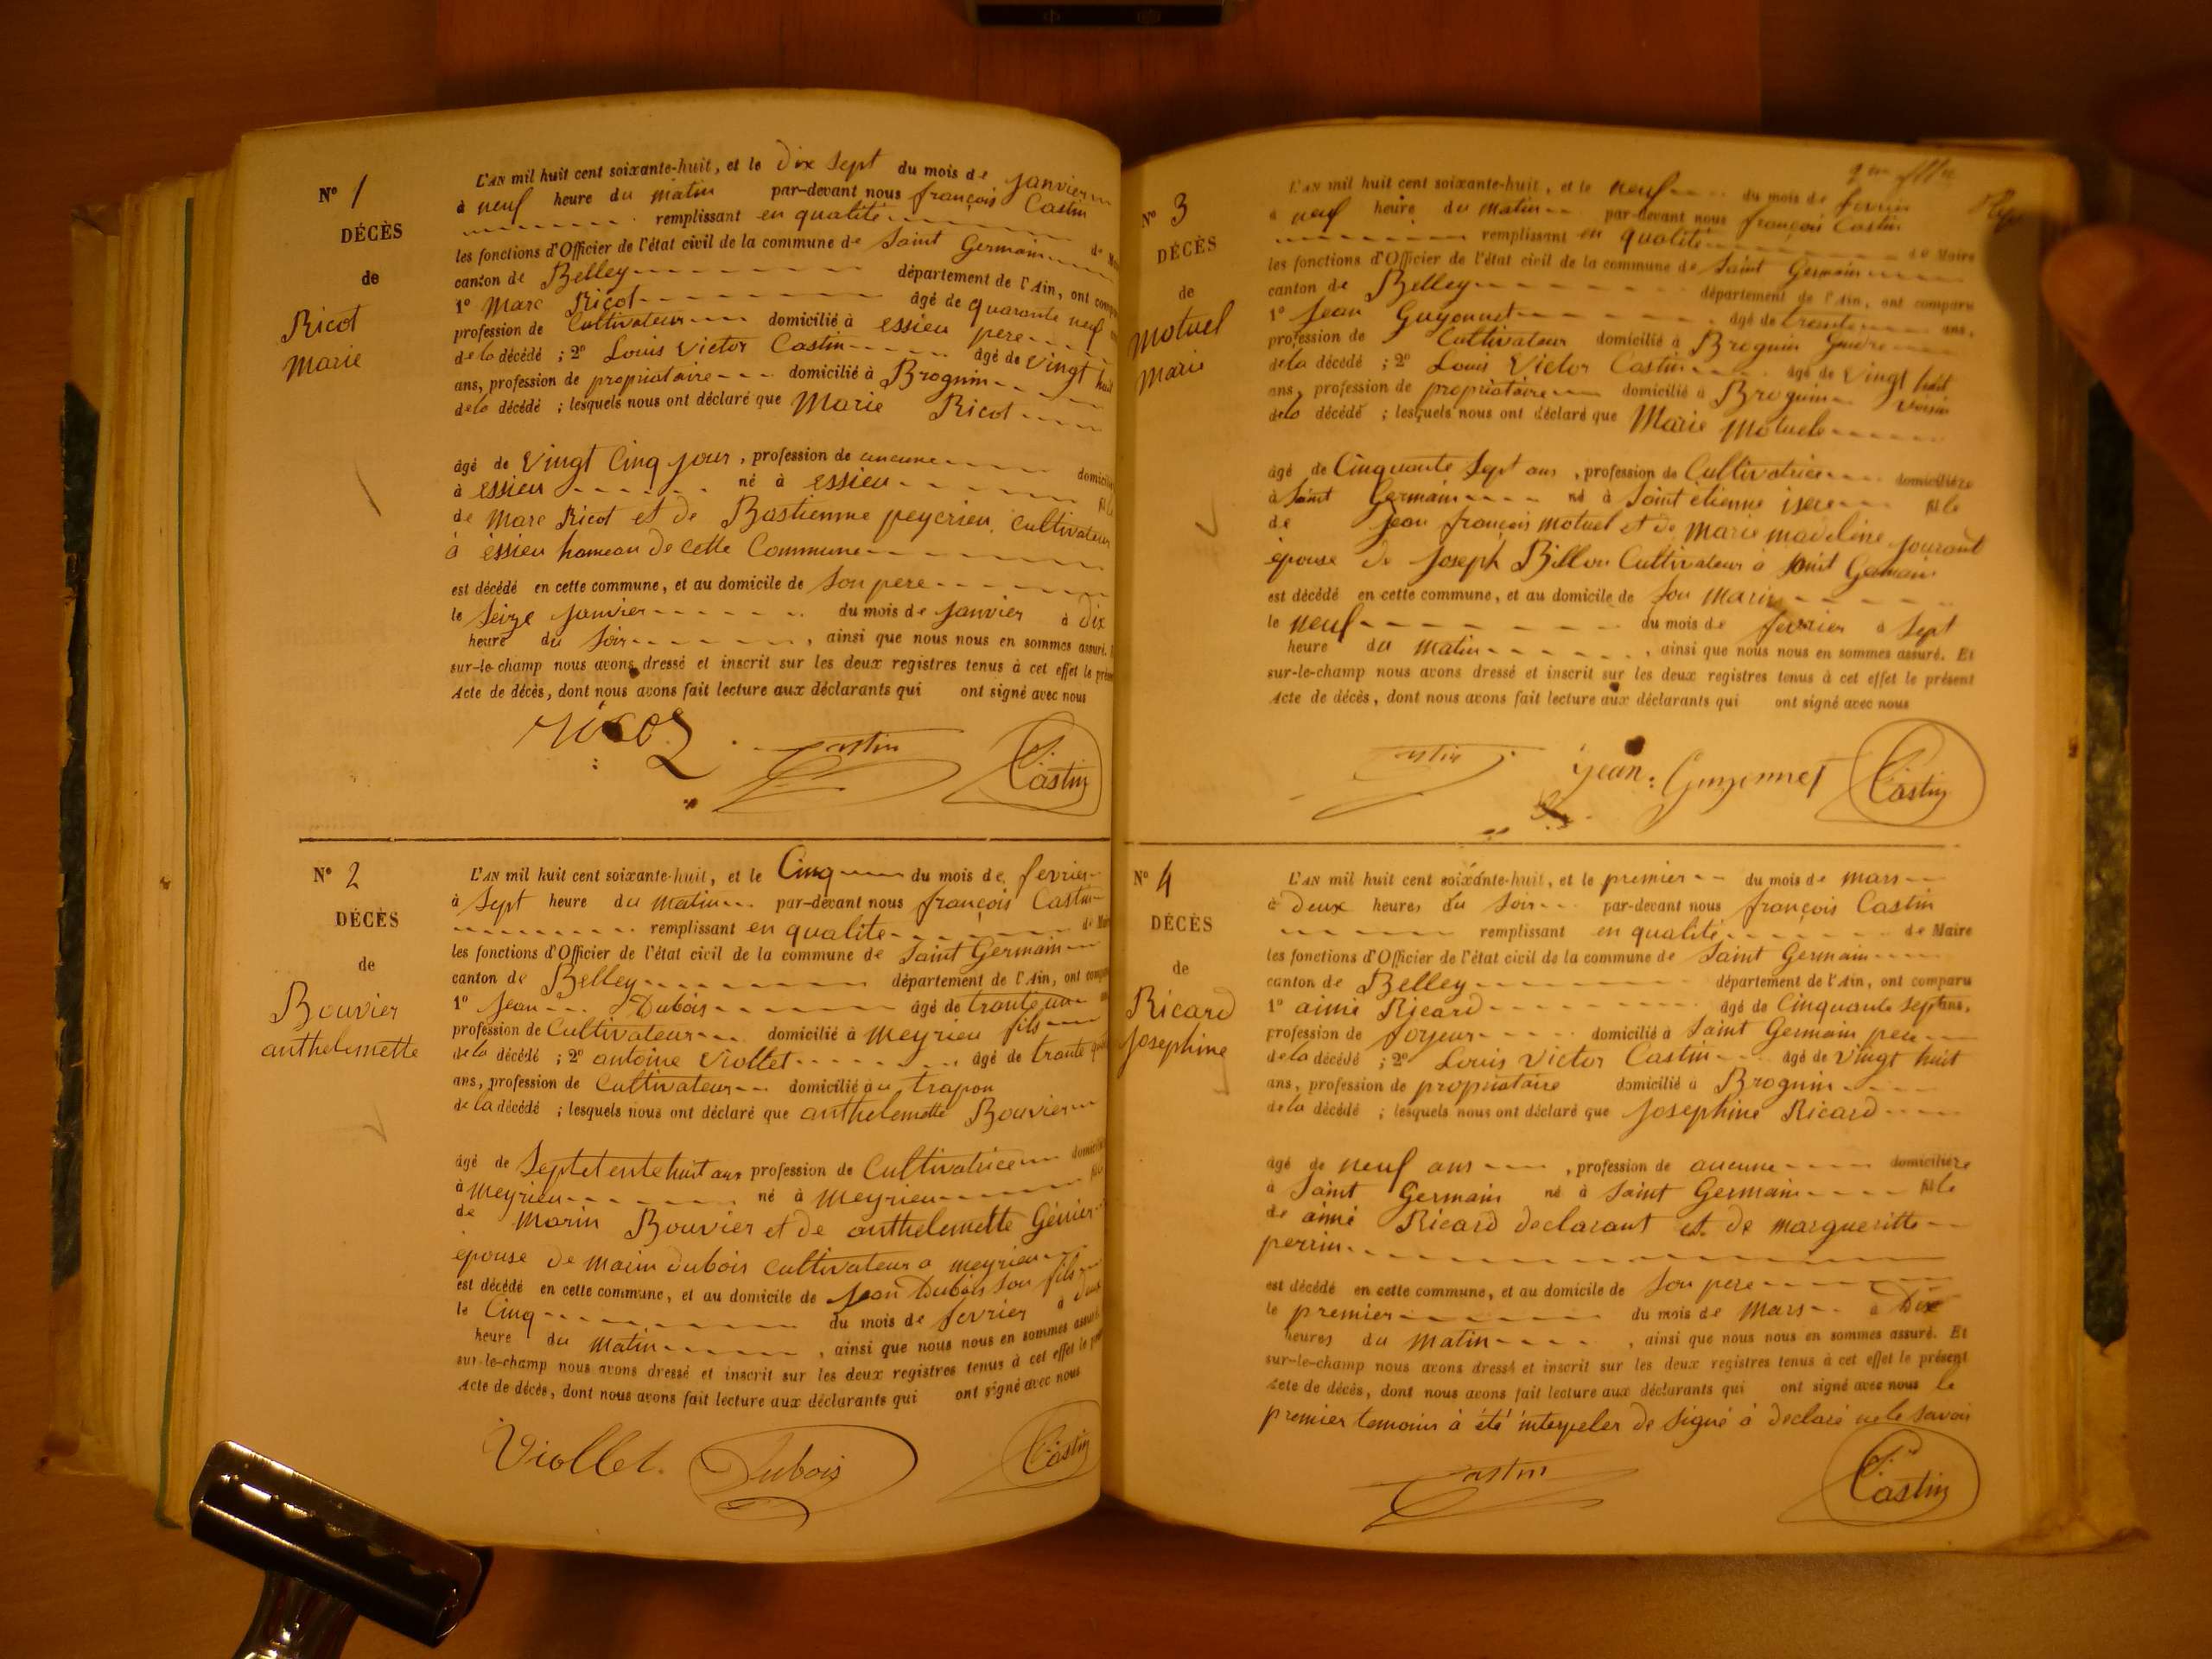 N° 1
DÉCÈS
de
Ricot
Marie
L'AN mil huit cent soixante-huit, et le Dix Sept du mois de janvier
à neuf heure du matin par-devant nous françois Castin
remplissant en qualité de
les fonctions d'Officier de l'état civil de la commune de Saint Germain
canton de Belley département de l'Ain, ont
1° Marc Ricot âgé de quarante neuf
profession de Cultivateur domicilié à essieu pere
de la décédé ; 2° Louis Victor Castin âgé de vingt huit
ans, profession de propriataire domicilié à Brognin
de la décédé ; lesquels nous ont déclaré que Marie Ricot
âgé de Vingt Cinq jour , profession de aucune
à essieu né à essieu
de Marc Ricot et de Bastienne peycrieu cultivateur
à éssieu hameau de cette Commune
est décédé en cette commune, et au domicile de Son pere
le Seize janvier du mois de janvier à dix
heure du Soir , ainsi que nous nous en sommes assuré.
sur-le-champ nous avons dressé et inscrit sur les deux registres tenus à cet effet le
Acte de décès, dont nous avons fait lecture aux déclarants qui ont signé avec nous
ricot Castin Castin
N° 2
DÉCÈS
de
Bouvier
anthelemette
L'AN mil huit cent soixante-huit, et le Cinq du mois de fevrier
à Sept heure du matin par-devant nous françois Castin
remplissant en qualité de
les fonctions d'Officier de l'état civil de la commune de Saint Germain
canton de Belley département de l'Ain, ont
1° Jean Dubois âgé de trante un
profession de Cultivateur domicilié à Meyrieu fils
de la décédé ; 2° antoine Viollet âgé de trante
ans, profession de Cultivateur domicilié au trapon
de la décédé ; lesquels nous ont déclaré que anthelemette Bouvier
âgé de Septetentehuit ans profession de Cultivatrice
à Meyrieu né à Meyrieu
de Marin Bouvier et de anthelemette Génier
épouse de Marin Dubois cultivateur a meyrieu
est décédé en cette commune, et au domicile de Jean Dubois Son fils
le Cinq du mois de fevrier à deux
heure du Matin , ainsi que nous nous en sommes
sur-le-champ nous avons dressé et inscrit sur les deux registres tenus à cet effet le
Acte de décès, dont nous avons fait lecture aux déclarants qui ont signé avec nous
Viollet Dubois Castin
N° 3
DÉCÈS
de
Motuel
Marie
L'AN mil huit cent soixante-huit, et le neuf du mois de fevrier
à neuf heure du Matin par-devant nous françois Castin
remplissant en qualité de Maire
les fonctions d'Officier de l'état civil de la commune de Saint Germain
canton de Belley département de l'Ain, ont comparu
1° Jean Guyonnet âgé de trante ans,
profession de Cultivateur domicilié à Brognin
de la décédé ; 2° Louis Victor Castin âgé de Vingt huit
ans, profession de propriatoire domicilié à Brognin voisin
de la décédé ; lesquels nous ont déclaré que Marie Motuel
âgé de Cinquante Sept ans , profession de Cultivatrice domiciliée
à Saint Germain né à Saint étienne isere fille
de Jean françois motuel et de Marie madeleine
épouse de Joseph Billon Cultivateur à Saint Germain
est décédé en cette commune, et au domicile de Son Marie
le neuf du mois de fevrier à Sept
heure du Matin , ainsi que nous nous en sommes assuré. Et
sur-le-champ nous avons dressé et inscrit sur les deux registres tenus à cet effet le présent
Acte de décès, dont nous avons fait lecture aux déclarants qui ont signé avec nous
Castin jean Guyonnet Castin
N° 4
DÉCÈS
de
Ricard
Josephine
L'AN mil huit cent soixante-huit, et le premier du mois de mars
à Deux heures du Soir par-devant nous françois Castin
remplissant en qualité de Maire
les fonctions d'Officier de l'état civil de la commune de Saint Germain
canton de Belley département de l'Ain, ont comparu
1° aimé Ricard âgé de Cinquante Sept ans,
profession de domicilié à Saint Germain pere
de la décédé ; 2° Louis Victor Castin âgé de Vingt huit
ans, profession de propriataire domicilié à Brognin
de la décédé ; lesquels nous ont déclaré que Josephine Ricard
âgé de neuf ans , profession de aucune domiciliée
à Saint Germain né à Saint Germain fille
de aimé Ricard declarant et de margueritte
perrin
est décédé en cette commune, et au domicile de Son pere
le premier du mois de Mars à Dix
heures du Matin , ainsi que nous nous en sommes assuré. Et
sur-le-champ nous avons dressé et inscrit sur les deux registres tenus à cet effet le présent
Acte de décès, dont nous avons fait lecture aux déclarants qui ont signé avec nous le
premier temoin à été interpeler de Signé à declaré ne le Savoir
Castin Castin